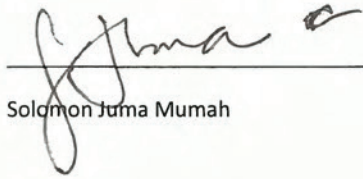 Solomon Juma Mumah